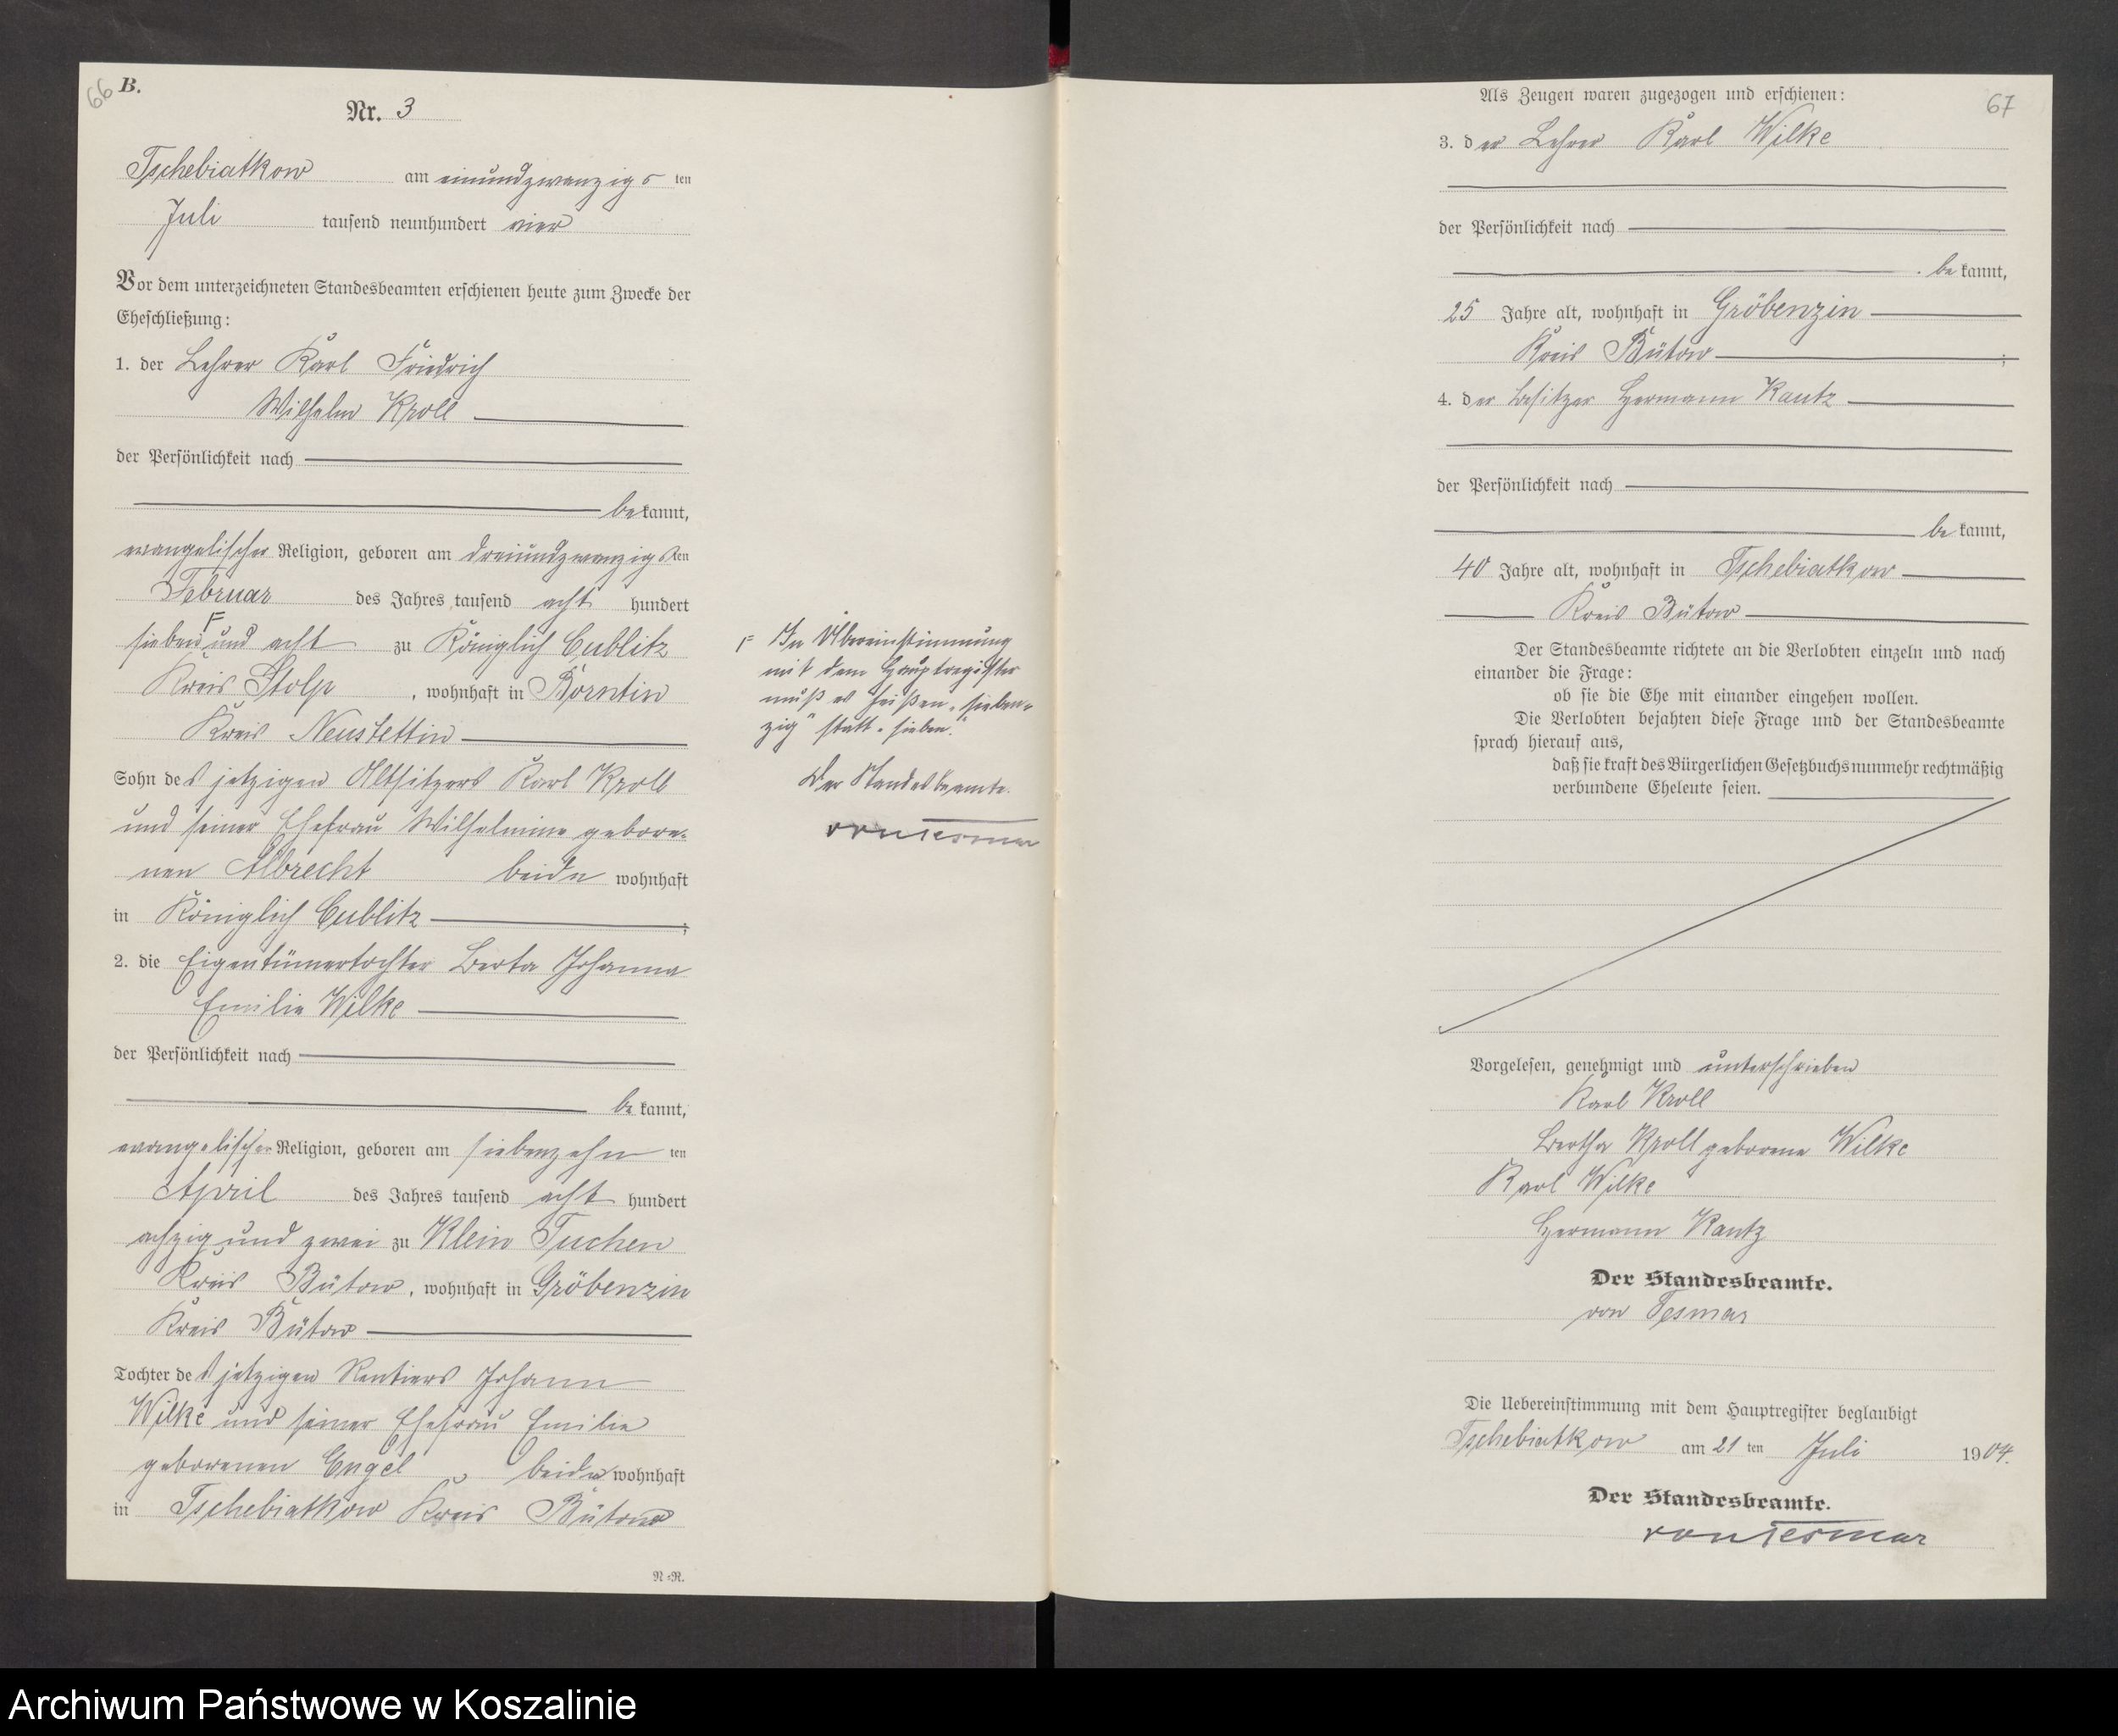 66
B.
Nr. 3
Tschebiatkow am einundzwanzigsten
Juli tausend neunhundert vier
Vor dem unterzeichneten Standesbeamten erschienen heute zum Zwecke der
Eheschließung:
1. der Lehrer Karl Friedrich
Wilhelm Kroll
der Persönlichkeit nach
bekannt,
evangelischer Religion, geboren am dreiundzwanzigsten
Februar des Jahres tausend acht hundert
sieben und acht zu Königlich Cublitz
Kreis Stolp, wohnhaft in Borntin
Kreis Neustettin
Sohn des jetzigen Altsitzers Karl Kroll
und seiner Ehefrau Wilhelmine gebore-
nen Albrecht beide wohnhaft
in Königlich Cublitz;
2. die Eigentümertochter Berta Johanna
Emilie Wilke
der Persönlichkeit nach
bekannt,
evangelischer Religion, geboren am siebenzehnten
April des Jahres tausend acht hundert
achzig und zwei zu Klein Tuchen
Kreis Bütow, wohnhaft in Gröbenzin
Kreis Bütow
Tochter des jetzigen Rentiers Johann
Wilke und seiner Ehefrau Emilie
geborenen Engel beide wohnhaft
in Tschebiatkow Kreis Bütow
N-R.
In Übereinstimmung
mit dem Hauptregister
muß es heißen „sieben-
zig" statt „sieben".
Der Standesbeamte.
von Tesmar
67
Als Zeugen waren zugezogen und erschienen:
3. der Lehrer Karl Wilke
der Persönlichkeit nach
bekannt,
25 Jahre alt, wohnhaft in Gröbenzin
Kreis Bütow;
4. der Besitzer Hermann Kautz
der Persönlichkeit nach
bekannt,
40 Jahre alt, wohnhaft in Tschebiatkow
Kreis Bütow
Der Standesbeamte richtete an die Verlobten einzeln und nach
einander die Frage:
ob sie die Ehe mit einander eingehen wollen.
Die Verlobten bejahten diese Frage und der Standesbeamte
sprach hierauf aus,
daß sie kraft des Bürgerlichen Gesetzbuchs nunmehr rechtmäßig
verbundene Eheleute seien.
Vorgelesen, genehmigt und unterschrieben
Karl Kroll
Bertha Kroll geborene Wilke
Karl Wilke
Hermann Kautz
Der Standesbeamte.
von Tesmar
Die Uebereinstimmung mit dem Hauptregister beglaubigt
Tschebiatkow am 21ten Juli 1904.
Der Standesbeamte.
von Tesmar
Archiwum Państwowe w Koszalinie